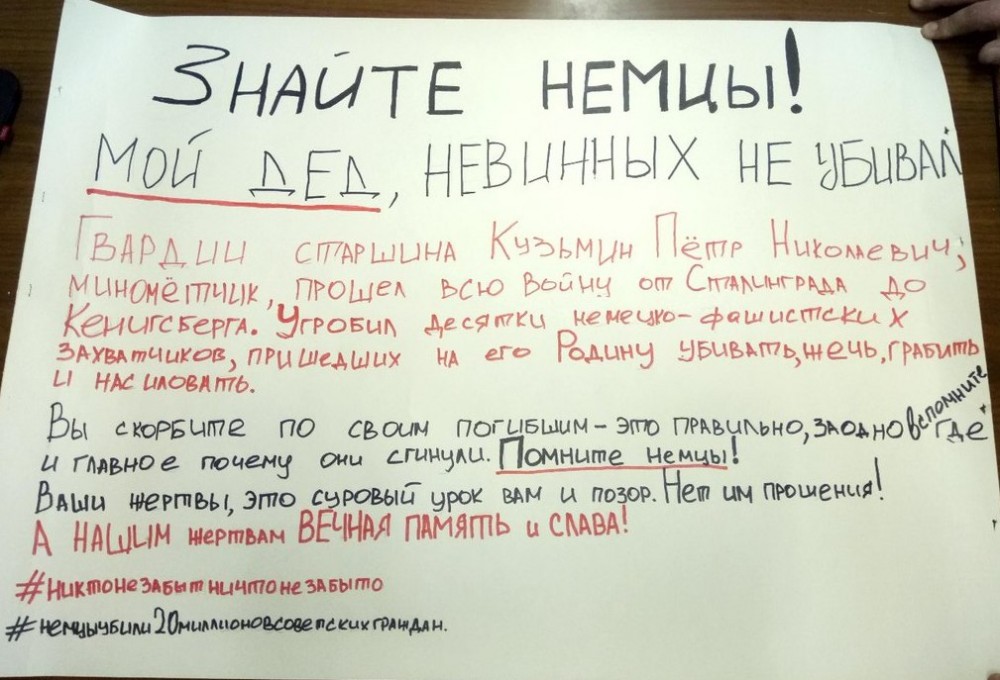 Знайте немцы!
Мой дед, невинных не убивал
Гвардии старшина Кузьмин Пётр Николаевич,
миномётчик, прошел всю войну от Сталинграда до
Кенигсберга. Угробил десятки немецко-фашистских
захватчиков, пришедших на его Родину убивать, жечь, грабить
и насиловать.
Вы скорбите по своим погибшим - это правильно, заодно вспомните где
и главное почему они сгинули. Помните немцы!
Ваши жертвы, это суровый урок вам и позор. Нет им прошения!
А нашим жертвам ВЕЧНАЯ ПАМЯТЬ и СЛАВА!
#никтонезабытничтонезабыто
#немцыубили20миллионовсоветскихграждан.